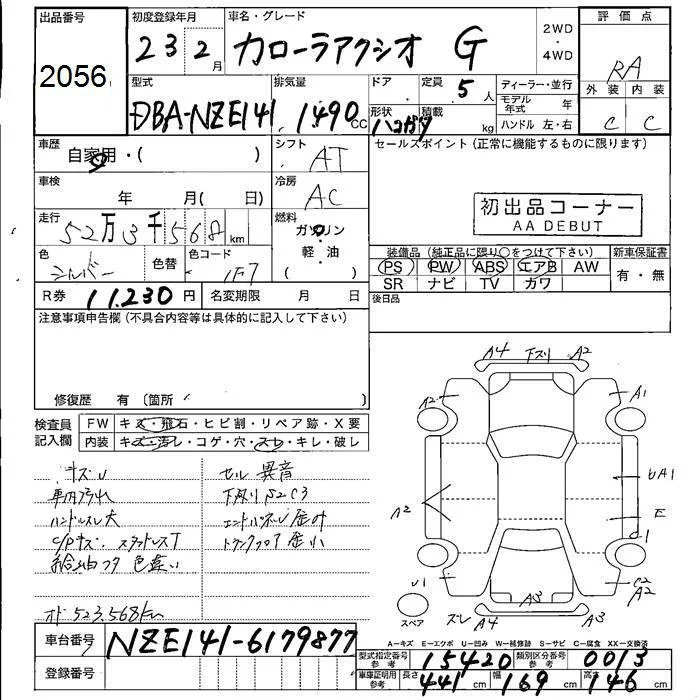 出品番号 初度登録年月 車名・グレード 評価点
2056 23 2月 カローラアクシオ G 2WD・4WD RA
型式 排気量 ドア 定員 5人 ディーラー・並行 外装 内装
DBA-NZE141 1490cc 形状 ハコガタ 積載 kg モデル年式 年 C C
ハンドル 左・右
車歴 自家用・( ) シフト AT セールスポイント(正常に機能するものに限ります)
車検 年 月( 日) 冷房 AC
初出品コーナー
AA DEBUT
走行 52万3千568km 燃料 ガソリン・軽・油( )
装備品(純正品に限り○をつけて下さい) 新車保証書
色 シルバー 色替 色コード 1F7
PS PW ABS エアB AW 有・無
SR ナビ TV ガワ
R券 11,230円 名変期限 月 日 後日品
注意事項申告欄(不具合内容等は具体的に記入して下さい)
修復歴 有 〔箇所 〕
検査員記入欄 FW キズ・飛石・ヒビ割・リペア跡・X要
内装 キズ・汚レ・コゲ・穴・スレ・キレ・破レ
キズU セル 異音
車内汚れ 下廻りS2C3
ハンドルスレ大 エンドパネル歪み
C/Pキズ スタッドレスT トランクフロア歪小
給油フタ 色違い
オド 523,568km
車台番号 NZE141-6179877
登録番号
A4 下スリ A2
A2 A1
UA1
A2 E
U1
U1 C2 A2
A3
スペア スレ A4 A3
A－キズ E－エクボ U－凹み W－補修跡 S－サビ C－腐食 XX－交換済
型式指定番号参考 15420 類別区分番号参考 0013
車庫証明用参考 長さ 441cm 幅 169cm 高さ 146cm